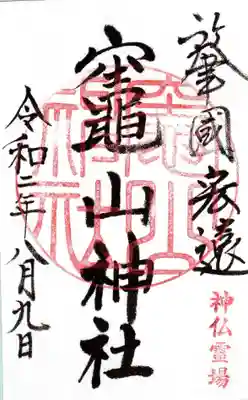 肇國宏遠
神仏霊場
竈山神社
令和二年八月九日